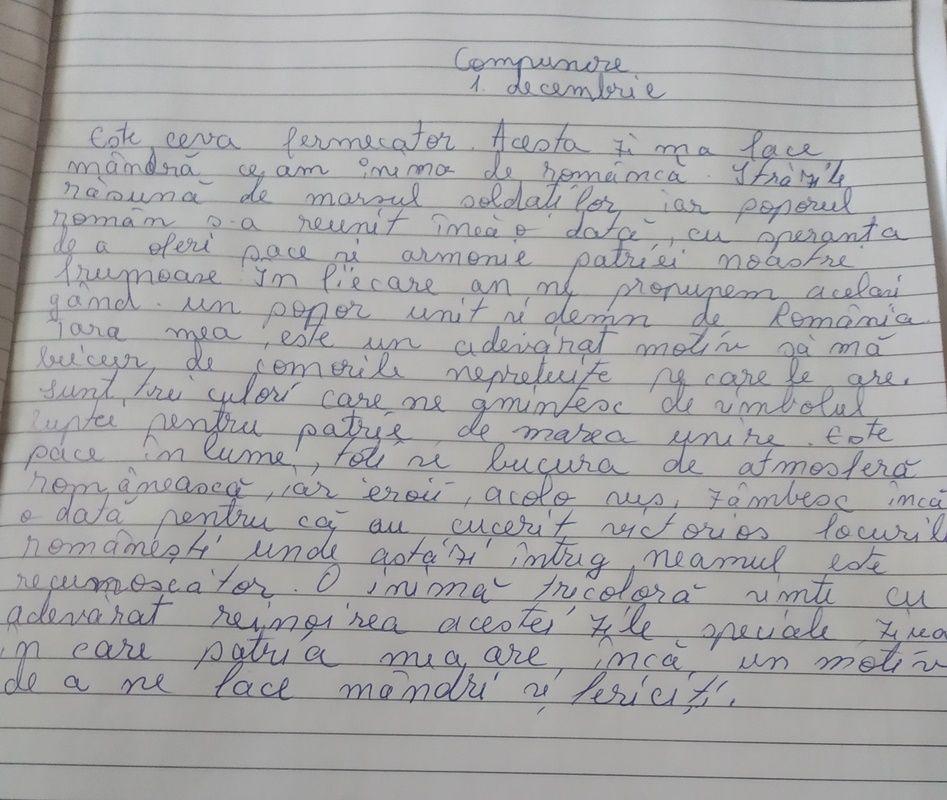 Compunere
1. decembrie
Este ceva fermecător. Acesta zi mă face
mândră ce am inima de româncă. Străzile
răsună de marșul soldaților, iar poporul
român s-a reunit încă o dată, cu speranța
de a oferi pace și armonie patriei noastre
frumoase. În fiecare an ne propunem același
gând. un popor unit și demn de România.
Țara mea, este un adevărat motiv să mă
bucur, de comorile neprețuite pe care le are.
Sunt trei culori care ne amintesc de simbolul
luptei pentru patrie, de marea unire. Este
pace în lume, toți se bucura de atmosferă
românească, iar eroii, acolo sus, zâmbesc încă
o dată pentru că au cucerit victorios locurile
românești unde astăzi întrig neamul este
recumoscător. O inimă tricoloră simte cu
adevărat reînoirea acestei zile speciale, ziua
în care patria mea are, încă, un motiv
de a ne face mândri și fericiți.